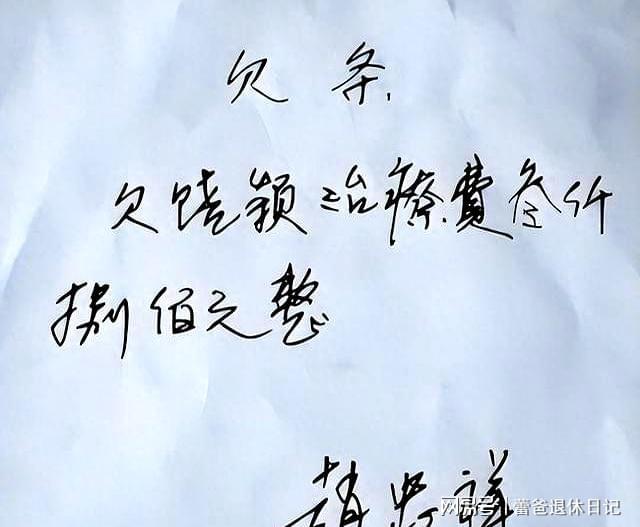 欠条.
欠饶颖治療費叁仟
捌佰元整
趙忠祥
网易号 | 蕾爸退休日记